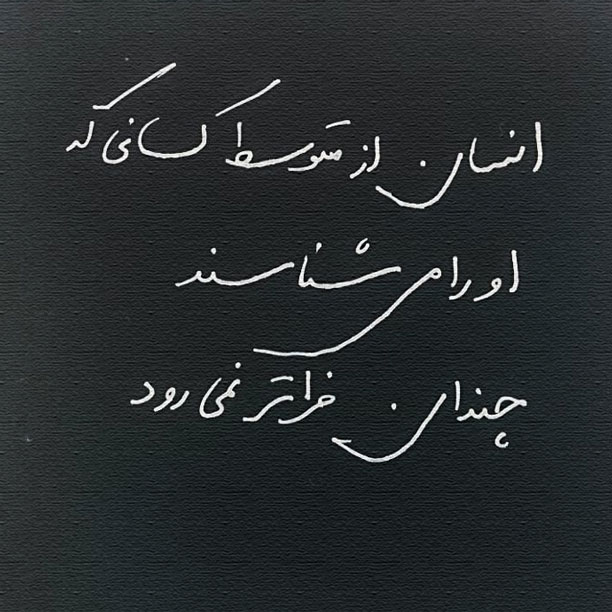 انسان از متوسط کسانی که
او را می شناسند
چندان فراتر نمی رود